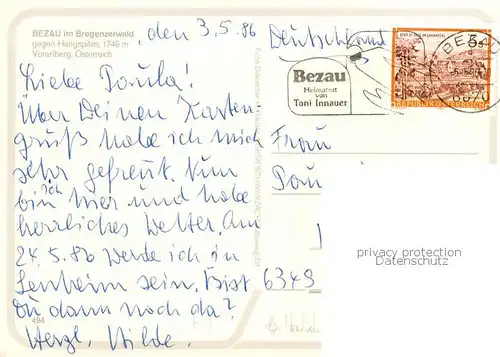 BEZAU im Bregenzerwald
gegen Hangspitze, 1746 m
Vorarlberg, Österreich
, den 3.5.86
Liebe Paula!
Über Deinen Karten-
gruß habe ich mich
sehr gefreut. Nun
bin ich hier und habe
herrliches Wetter. Am
24.5.86 werde ich in
sein. Bist
Du dann noch da?
Herzl. Hilde.
494
Deutschland
Bezau
Heimatort
von
Toni Innauer
BEZAU
REPUBLIK ÖSTERREICH
Frau
6349
privacy protection
Datenschutz